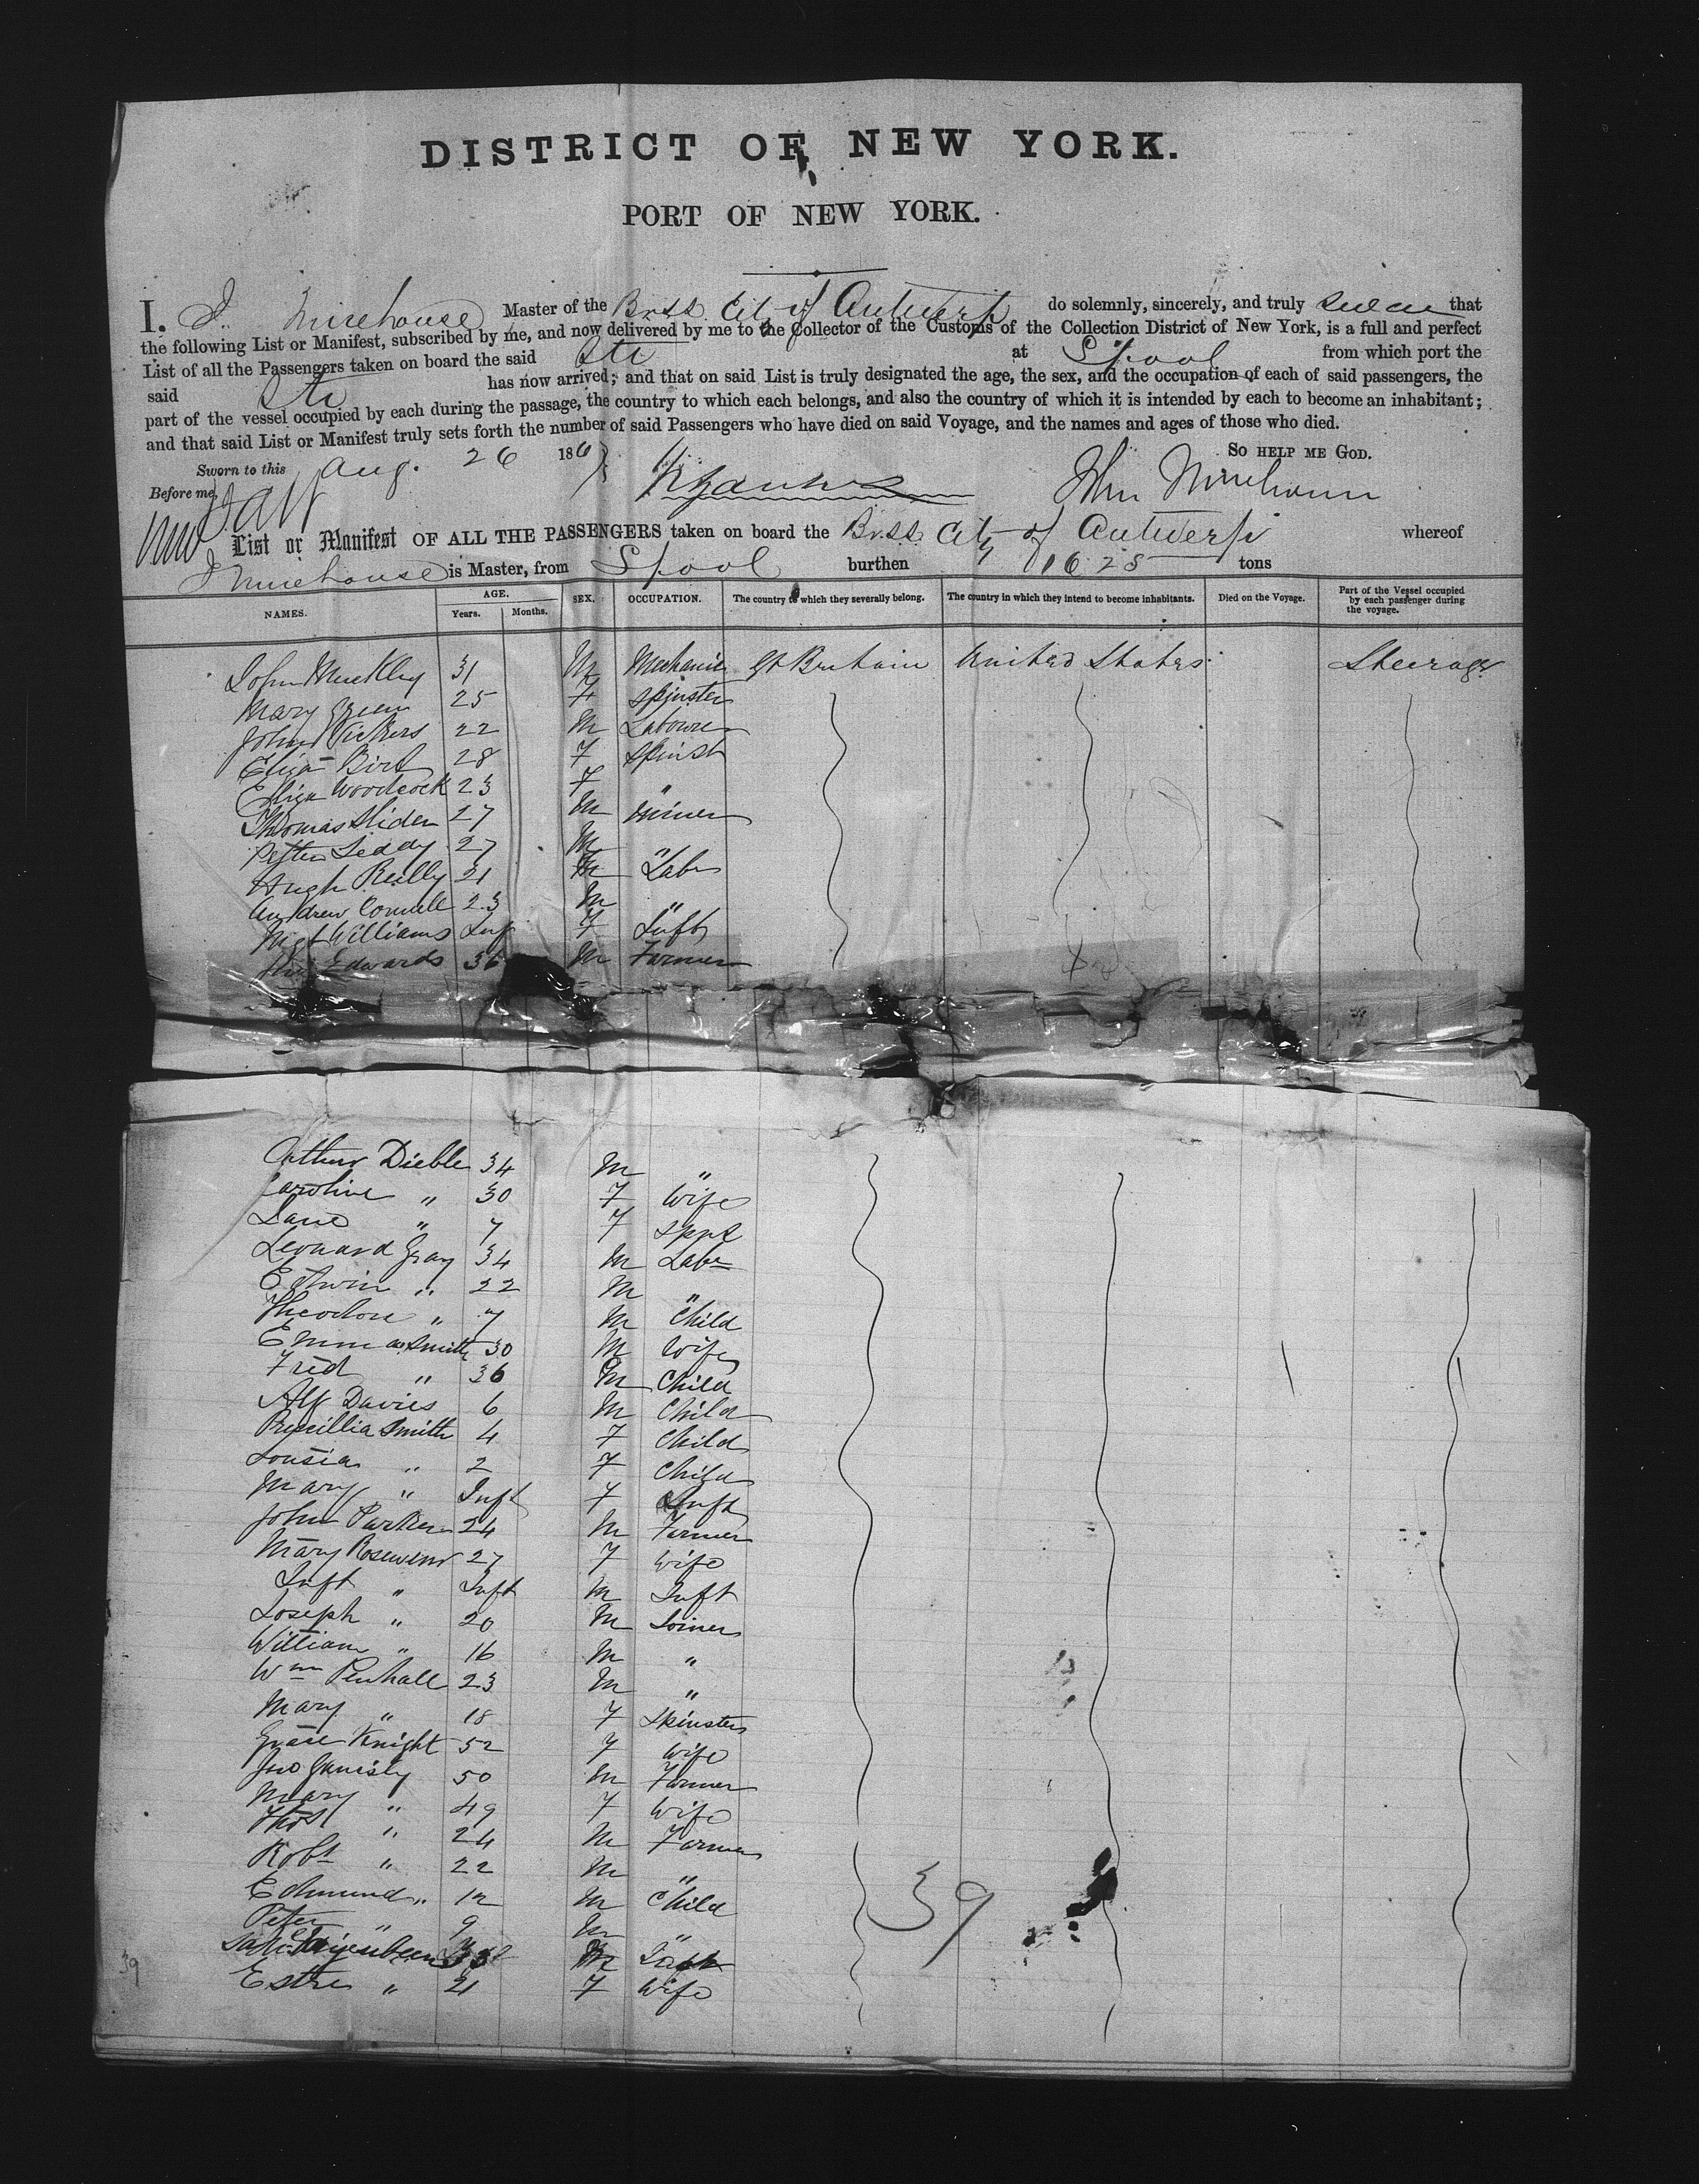 DISTRICT OF NEW YORK.
PORT OF NEW YORK.
I. J. Mirehouse Master of the Br.SS. City of Antwerp do solemnly, sincerely, and truly swear that
the following List or Manifest, subscribed by me, and now delivered by me to the Collector of the Customs of the Collection District of New York, is a full and perfect
List of all the Passengers taken on board the said Str at L'pool from which port the
said Str has now arrived; and that on said List is truly designated the age, the sex, and the occupation of each of said passengers, the
part of the vessel occupied by each during the passage, the country to which each belongs, and also the country of which it is intended by each to become an inhabitant;
and that said List or Manifest truly sets forth the number of said Passengers who have died on said Voyage, and the names and ages of those who died.
Sworn to this Aug. 26 186 So help me God.
Before me, John Mirehouse
List or Manifest OF ALL THE PASSENGERS taken on board the Br.SS. City of Antwerp whereof
J Mirehouse is Master, from L'pool burthen 1625 tons
NAMES. AGE. Years. Months. SEX. OCCUPATION. The country to which they severally belong. The country in which they intend to become inhabitants. Died on the Voyage. Part of the Vessel occupied by each passenger during the voyage.
John Muckley 31 M Mechanic Gt Britain United States Steerage
Mary Green 25 F Spinster
John Vickers 22 M Labourer
Eliza Bird 28 F Spinst
Eliza Woodcock 23 F "
Thomas Sliden 27 M Miner
Peter Leddy 27 M "
Hugh Reilly 21 M Labr
Andrew Connell 23 M "
Mgt Williams Inf F Inft
Edwards 36 M Farmer
Arthur Dieble 34 M "
Caroline " 30 F Wife
Jane " 7 F Spst
Leonard Gray 34 M Labr
Edwin " 22 M "
Theodore " 7 M Child
Emma Smith 30 M Wife
Fred " 36 M Child
Alf Davies 6 M Child
Pricillia Smith 4 F Child
Lousia " 2 F Child
Mary " Inft F Inft
John Parker 24 M Farmer
Mary Rosewenr 27 F Wife
Inft " Inft M Inft
Joseph " 20 M Joiner
William " 16 M "
Wm Penhall 23 M "
Mary " 18 F Spinster
Grace Knight 52 F Wife
Jno 50 M Farmer
Mary " 49 F Wife
Thos " 24 M Farmer
Robt " 22 M "
Edmund " 12 M Child
Peter " 9 M "
M
Estre " 21 F Wife
39
39